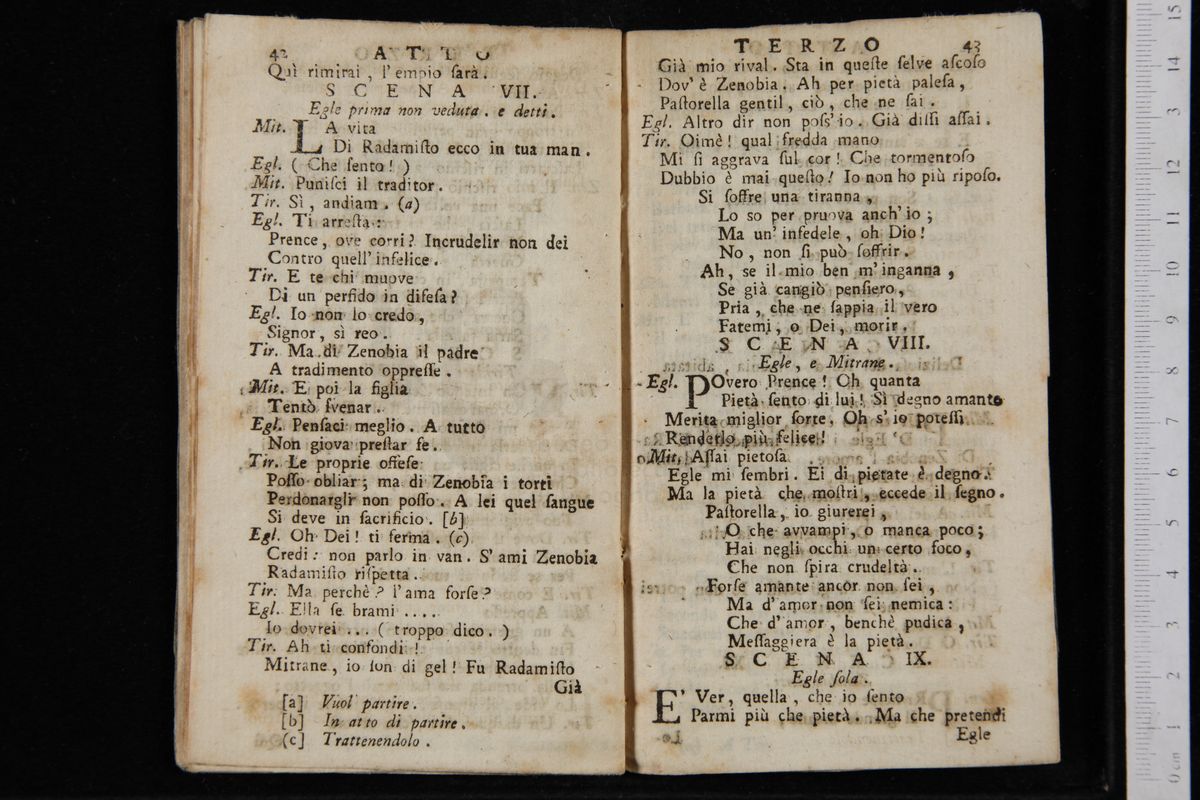 42 ATTO
Quì rimirai, l'empio sarà.
SCENA VII.
Egle prima non veduta. e detti.
Mit. LA vita
Di Radamiſto ecco in tua man.
Egl. ( Che ſento! )
Mit. Puniſci il traditor.
Tir. Sì, andiam. (a)
Egl. Ti arreſta:
Prence, ove corri? Incrudelir non dei
Contro quell' infelice.
Tir. E te chi muove
Di un perfido in difeſa?
Egl. Io non lo credo,
Signor, sì reo.
Tir. Ma di Zenobia il padre
A tradimento oppreſſe.
Mit. E poi la figlia
Tentò ſvenar.
Egl. Penſaci meglio. A tutto
Non giova preſtar fe.
Tir. Le proprie offeſe
Poſſo obliar; ma di Zenobia i torti
Perdonargli non poſſo. A lei quel ſangue
Si deve in ſacrificio. [b]
Egl. Oh Dei! ti ferma. (c)
Credi: non parlo in van. S' ami Zenobia
Radamiſto riſpetta.
Tir. Ma perchè? l'ama forſe?
Egl. Ella ſe brami ....
Io dovrei ... ( troppo dico. )
Tir. Ah ti confondi!
Mitrane, io ſon di gel! Fu Radamiſto
Già
[a] Vuol partire.
[b] In atto di partire.
(c] Trattenendolo.
TERZO 43
Già mio rival. Sta in queſte ſelve aſcoſo
Dov' è Zenobia. Ah per pietà paleſa,
Paſtorella gentil, ciò, che ne ſai.
Egl. Altro dir non poſs' io. Già diſſi aſſai.
Tir. Oimè! qual fredda mano
Mi ſi aggrava ſul cor! Che tormentoſo
Dubbio è mai queſto! Io non ho più ripoſo.
Si ſoffre una tiranna,
Lo so per pruova anch' io;
Ma un' infedele, oh Dio!
No, non ſi può ſoffrir.
Ah, se il mio ben m' inganna,
Se già cangiò penſiero,
Pria, che ne ſappia il vero
Fatemi, o Dei, morir.
SCENA VIII.
Egle, e Mitrane.
Egl. POvero Prence! Oh quanta
Pietà ſento di lui! Sì degno amante
Merita miglior ſorte. Oh s' io poteſſi
Renderlo più felice!
Mit. Aſſai pietoſa
Egle mi ſembri. Ei di pietate è degno.
Ma la pietà che moſtri, eccede il ſegno.
Paſtorella, io giurerei,
O che avvampi, o manca poco;
Hai negli occhi un certo foco,
Che non ſpira crudeltà.
Forſe amante ancor non ſei,
Ma d' amor non ſei nemica:
Che d' amor, benchè pudica,
Meſſaggiera è la pietà.
SCENA IX.
Egle ſola.
E' Ver, quella, che io ſento
Parmi più che pietà. Ma che pretendi
Egle